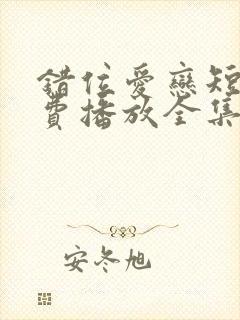 錯位愛戀短
費播放全集
安冬旭